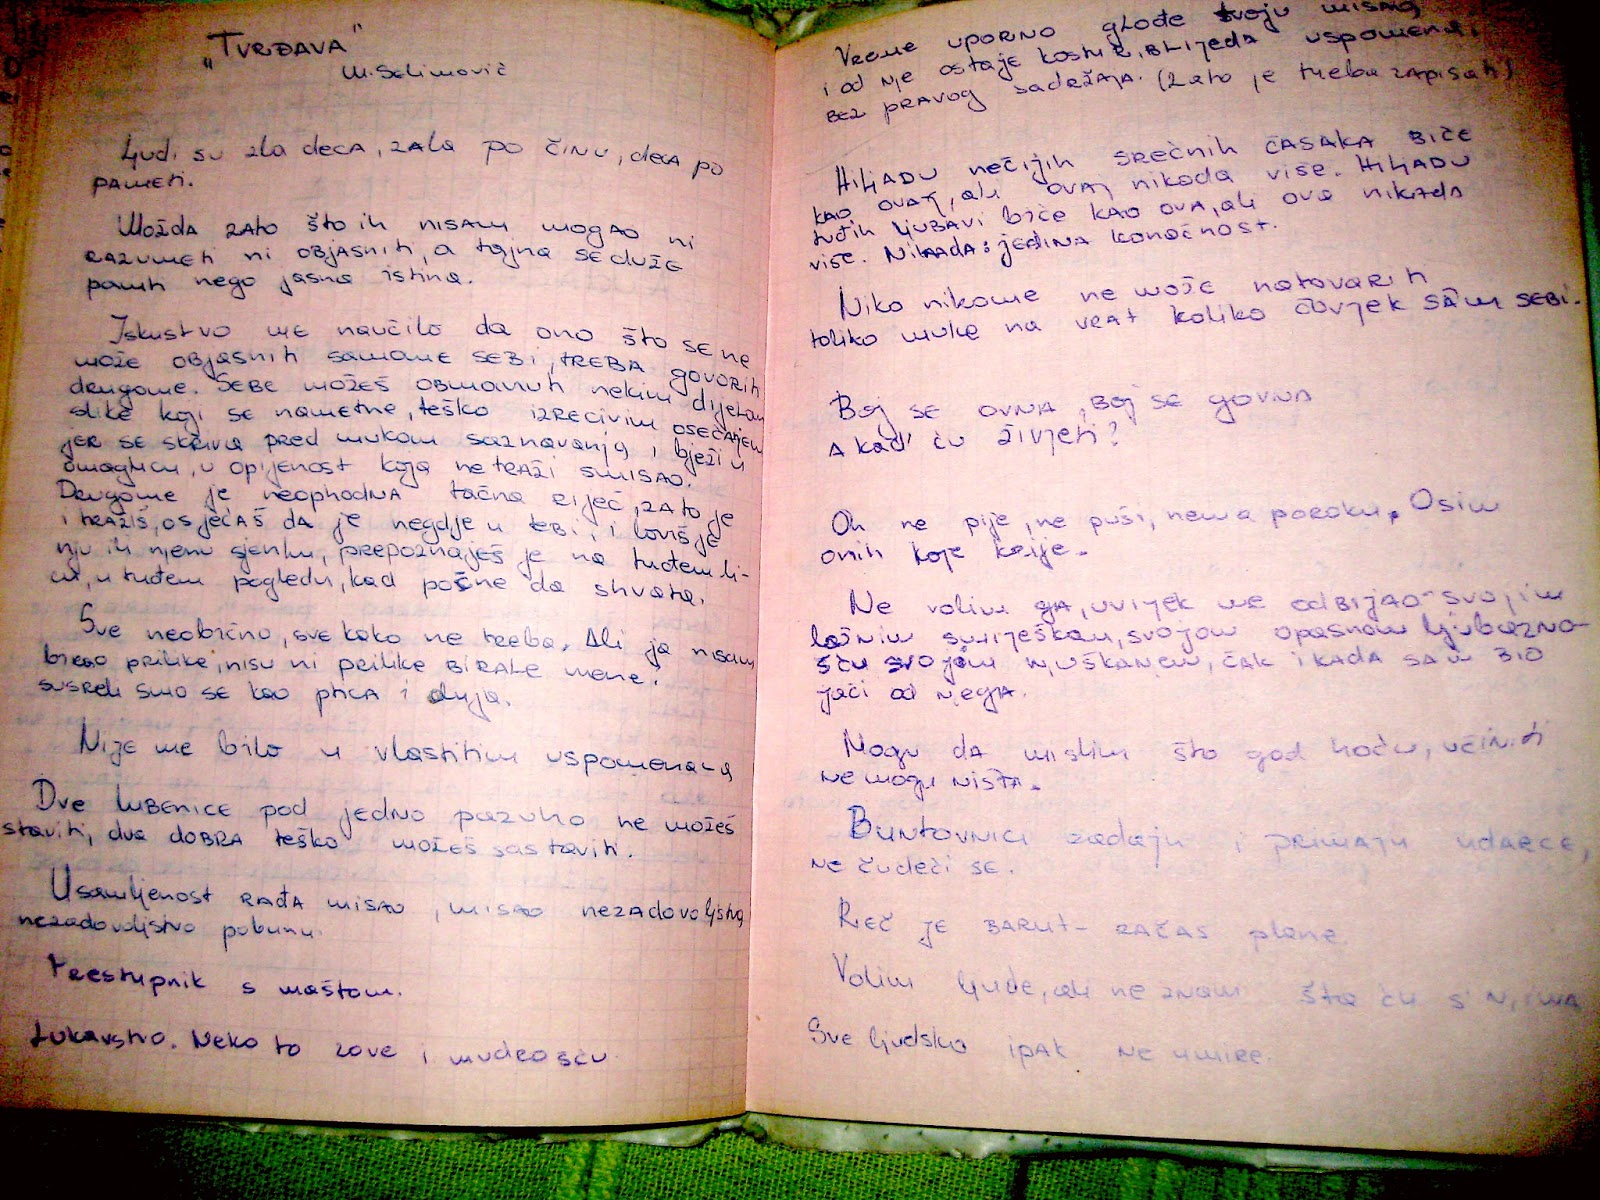 „Tvrđava"
M. Selimović
Ljudi su zla deca, zala po činu, deca po
pameti.
Možda zato što ih nisam mogao ni
razumeti ni objasniti, a tajna se duže
pamti nego jasna istina.
Iskustvo me naučilo da ono što se ne
može objasniti samome sebi, treba govoriti
drugome. Sebe možeš obmanuti nekim dijelom
slike koji se nametne, teško izrecivim osećajem
jer se skriva pred mukom saznavanja i bježi u
omaglicu, u opijenost koja ne traži smisao.
Drugome je neophodna tačna riječ, zato je
i tražiš, osjećaš da je negdje u tebi, i loviš je
nju ili njenu sjenku, prepoznaješ je na tuđem li-
cu, u tuđem pogledu, kad počne da shvata.
Sve neobično, sve kako ne treba. Ali ja nisam
birao prilike, nisu ni prilike birale mene.
susreli smo se kao ptica i oluja.
Nije me bilo u vlastitim uspomenama
Dve lubenice pod jedno pazuho ne možeš
staviti, dva dobra teško možeš sastaviti.
Usamljenost rađa misao, misao nezadovoljstvo
nezadovoljstvo pobunu.
Prestupnik s maštom.
Lukavstvo. Neko to zove i mudrošću
Vreme uporno glođe svoju misao
i od nje ostaje kostur, blijeda uspomena,
bez pravog sadržaja. (Zato je treba zapisati)
Hiljadu nečijih srećnih časaka biće
kao ovaj, ali ovaj nikada više. Hiljadu
tuđih ljubavi biće kao ova, ali ova nikada
više. Nikada: jedina konačnost.
Niko nikome ne može natovariti
toliko muke na vrat koliko čovjek sâm sebi.
Boj se ovna, boj se govna
a kad' ću živjeti?
On ne pije, ne puši, nema poroka. Osim
onih koje krije.
Ne volim ga, uvijek me odbijao svojim
lažnim smiješkom, svojom opasnom ljubazno-
šću svojim njuškanjem, čak i kada sam bio
jači od njega.
Mogu da mislim što god hoću, učiniti
ne mogu ništa.
Buntovnici zadaju i primaju udarce,
ne čudeći se.
Reč je barut - začas plane.
Volim ljude, ali ne znam šta ću s njima
Sve ljudsko ipak ne umire.